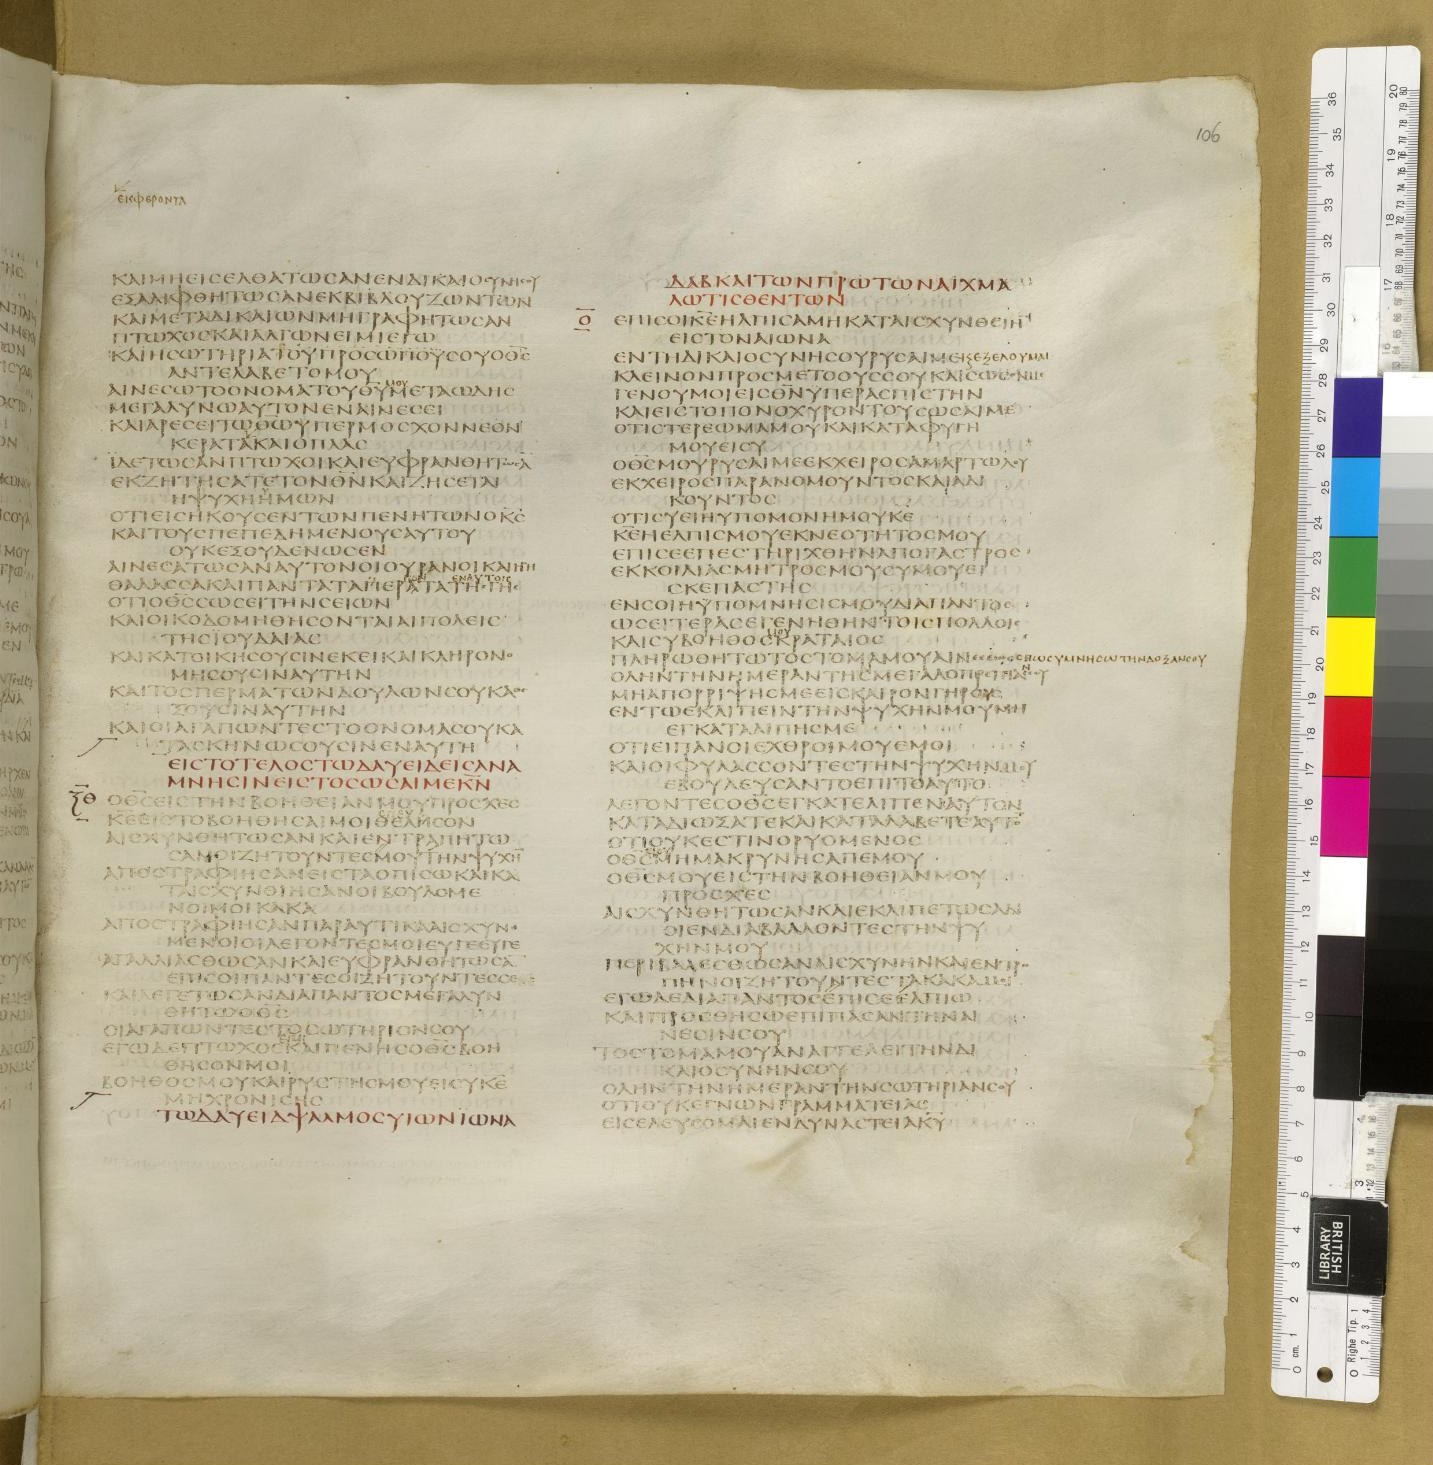 106
ΕΚΦΕΡΟΝΤΑ
ΚΑΙΜΗΕΙΣΕΛΘΑΤΩΣΑΝΕΝΔΙΚΑΙΟΣΥΝΗΣΟΥ
ΕΞΑΛΙΦΘΗΤΩΣΑΝΕΚΒΙΒΛΟΥΖΩΝΤΩΝ
ΚΑΙΜΕΤΑΔΙΚΑΙΩΝΜΗΓΡΑΦΗΤΩΣΑΝ
ΠΤΩΧΟΣΚΑΙΑΛΓΩΝΕΙΜΙΕΓΩ
ΚΑΙΗΣΩΤΗΡΙΑΤΟΥΠΡΟΣΩΠΟΥΣΟΥΟΘΣ
ΑΝΤΕΛΑΒΕΤΟΜΟΥ
ΑΙΝΕΣΩΤΟΟΝΟΜΑΤΟΥΘΥΜΟΥΜΕΤΑΩΔΗΣ
ΜΕΓΑΛΥΝΩΑΥΤΟΝΕΝΑΙΝΕΣΕΙ
ΚΑΙΑΡΕΣΕΙΤΩΘΩΥΠΕΡΜΟΣΧΟΝΝΕΟΝ
ΚΕΡΑΤΑΚΑΙΟΠΛΑΣ
ΙΔΕΤΩΣΑΝΠΤΩΧΟΙΚΑΙΕΥΦΡΑΝΘΗΤΩΣΑ
ΕΚΖΗΤΗΣΑΤΕΤΟΝΘΝΚΑΙΖΗΣΕΤΑΙ
ΗΨΥΧΗΗΜΩΝ
ΟΤΙΕΙΣΗΚΟΥΣΕΝΤΩΝΠΕΝΗΤΩΝΟΚΣ
ΚΑΙΤΟΥΣΠΕΠΕΔΗΜΕΝΟΥΣΑΥΤΟΥ
ΟΥΚΕΞΟΥΔΕΝΩΣΕΝ
ΑΙΝΕΣΑΤΩΣΑΝΑΥΤΟΝΟΙΟΥΡΑΝΟΙΚΑΙΗΓΗ
ΟΤΙΟΘΣΣΩΣΕΙΤΗΝΣΕΙΩΝ
ΚΑΙΟΙΚΟΔΟΜΗΘΗΣΟΝΤΑΙΑΙΠΟΛΕΙΣ
ΤΗΣΙΟΥΔΑΙΑΣ
ΚΑΙΚΑΤΟΙΚΗΣΟΥΣΙΝΕΚΕΙΚΑΙΚΛΗΡΟΝΟ
ΜΗΣΟΥΣΙΝΑΥΤΗΝ
ΚΑΙΤΟΣΠΕΡΜΑΤΩΝΔΟΥΛΩΝΣΟΥΚΑΘΕ
ΞΟΥΣΙΝΑΥΤΗΝ
ΚΑΙΟΙΑΓΑΠΩΝΤΕΣΤΟΟΝΟΜΑΣΟΥΚΑ
ΤΑΣΚΗΝΩΣΟΥΣΙΝΕΝΑΥΤΗ
ΕΙΣΤΟΤΕΛΟΣΤΩΔΑΥΕΙΔΕΙΣΑΝΑ
ΜΝΗΣΙΝΕΙΣΤΟΣΩΣΑΙΜΕΚΝ
ΞΘ
ΟΘΣΕΙΣΤΗΝΒΟΗΘΕΙΑΝΜΟΥΠΡΟΣΧΕΣ
ΑΙΣΧΥΝΘΗΤΩΣΑΝΚΑΙΕΝΤΡΑΠΗΤΩ
ΣΑΝΟΙΖΗΤΟΥΝΤΕΣΜΟΥΤΗΝΨΥΧΗ
ΑΠΟΣΤΡΑΦΗΗΣΑΝΕΙΣΤΑΟΠΙΣΩΚΑΙΚΑ
ΤΑΙΣΧΥΝΘΙΗΣΑΝΟΙΒΟΥΛΟΜΕ
ΝΟΙΜΟΙΚΑΚΑ
ΑΠΟΣΤΡΑΦΙΗΣΑΝΠΑΡΑΥΤΙΚΑΑΙΣΧΥΝΟ
ΜΕΝΟΙΟΙΛΕΓΟΝΤΕΣΜΟΙΕΥΓΕΕΥΓΕ
ΑΓΑΛΛΙΑΣΘΩΣΑΝΚΑΙΕΥΦΡΑΝΘΗΤΩΣΑ
ΕΠΙΣΟΙΠΑΝΤΕΣΟΙΖΗΤΟΥΝΤΕΣΣΕ
ΚΑΙΛΕΓΕΤΩΣΑΝΔΙΑΠΑΝΤΟΣΜΕΓΑΛΥΝ
ΘΗΤΩΟΘΣ
ΟΙΑΓΑΠΩΝΤΕΣΤΟΣΩΤΗΡΙΟΝΣΟΥ
ΕΓΩΔΕΠΤΩΧΟΣΕΙΜΙΚΑΙΠΕΝΗΣΟΘΣΒΟΗ
ΘΗΣΟΝΜΟΙ
ΒΟΗΘΟΣΜΟΥΚΑΙΡΥΣΤΗΣΜΟΥΕΙΣΥΚΕ
ΜΗΧΡΟΝΙΣΗΣ
ΤΩΔΑΥΕΙΔΨΑΛΜΟΣΥΙΩΝΙΩΝΑ
ΔΑΒΚΑΙΤΩΝΠΡΩΤΩΝΑΙΧΜΑ
ΛΩΤΙΣΘΕΝΤΩΝ
Ο
ΕΠΙΣΟΙΚΕΗΛΠΙΣΑΜΗΚΑΤΑΙΣΧΥΝΘΕΙΗ
ΕΙΣΤΟΝΑΙΩΝΑ
ΕΝΤΗΔΙΚΑΙΟΣΥΝΗΣΟΥΡΥΣΑΙΜΕ
ΚΛΕΙΝΟΝΠΡΟΣΜΕΤΟΟΥΣΣΟΥΚΑΙΣΩΣΟΝΜΕ
ΓΕΝΟΥΜΟΙΕΙΣΘΝΥΠΕΡΑΣΠΙΣΤΗΝ
ΚΑΙΕΙΣΤΟΠΟΝΟΧΥΡΟΝΤΟΥΣΩΣΑΙΜΕ
ΟΤΙΣΤΕΡΕΩΜΑΜΟΥΚΑΙΚΑΤΑΦΥΓΗ
ΜΟΥΕΙΣΥ
ΟΘΣΜΟΥΡΥΣΑΙΜΕΕΚΧΕΙΡΟΣΑΜΑΡΤΩΛΟΥ
ΕΚΧΕΙΡΟΣΠΑΡΑΝΟΜΟΥΝΤΟΣΚΑΙΑΔΙ
ΚΟΥΝΤΟΣ
ΟΤΙΣΥΕΙΗΥΠΟΜΟΝΗΜΟΥΚΕ
ΚΕΗΕΛΠΙΣΜΟΥΕΚΝΕΟΤΗΤΟΣΜΟΥ
ΕΠΙΣΕΕΠΕΣΤΗΡΙΧΘΗΝΑΠΟΓΑΣΤΡΟΣ
ΕΚΚΟΙΛΙΑΣΜΗΤΡΟΣΜΟΥΣΥΜΟΥΕΙ
ΣΚΕΠΑΣΤΗΣ
ΕΝΣΟΙΗΥΠΟΜΝΗΣΙΣΜΟΥΔΙΑΠΑΝΤΟΣ
ΩΣΕΙΤΕΡΑΣΕΓΕΝΗΘΗΝΤΟΙΣΠΟΛΛΟΙΣ
ΚΑΙΣΥΒΟΗΘΟΣΜΟΥΚΡΑΤΑΙΟΣ
ΠΛΗΡΩΘΗΤΩΤΟΣΤΟΜΑΜΟΥΑΙΝΕΣΕΩΣΟΠΩΣΥΜΝΗΣΩΤΗΝΔΟΞΑΝΣΟΥ
ΟΛΗΝΤΗΝΗΜΕΡΑΝΤΗΣΜΕΓΑΛΟΠΡΕΠΙΑΝΣΟΥ
ΜΗΑΠΟΡΡΙΨΗΣΜΕΕΙΣΚΑΙΡΟΝΓΗΡΟΥΣ
ΕΝΤΩΕΚΛΙΠΕΙΝΤΗΝΨΥΧΗΝΜΟΥΜΗ
ΕΓΚΑΤΑΛΙΠΗΣΜΕ
ΟΤΙΕΙΠΑΝΟΙΕΧΘΡΟΙΜΟΥΕΜΟΙ
ΚΑΙΟΙΦΥΛΑΣΣΟΝΤΕΣΤΗΝΨΥΧΗΝΜΟΥ
ΕΒΟΥΛΕΥΣΑΝΤΟΕΠΙΤΟΑΥΤΟ
ΛΕΓΟΝΤΕΣΟΘΣΕΓΚΑΤΕΛΙΠΕΝΑΥΤΟΝ
ΚΑΤΑΔΙΩΞΑΤΕΚΑΙΚΑΤΑΛΑΒΕΤΕΑΥΤΟ
ΟΤΙΟΥΚΕΣΤΙΝΟΡΥΟΜΕΝΟΣ
ΟΘΣΜΗΜΑΚΡΥΝΗΣΑΠΕΜΟΥ
ΟΘΣΜΟΥΕΙΣΤΗΝΒΟΗΘΕΙΑΝΜΟΥ
ΠΡΟΣΧΕΣ
ΑΙΣΧΥΝΘΗΤΩΣΑΝΚΑΙΕΚΛΙΠΕΤΩΣΑΝ
ΟΙΕΝΔΙΑΒΑΛΛΟΝΤΕΣΤΗΝΨΥ
ΧΗΝΜΟΥ
ΠΕΡΙΒΑΛΕΣΘΩΣΑΝΑΙΣΧΥΝΗΝΚΑΙΕΝΤΡΟ
ΠΗΝΟΙΖΗΤΟΥΝΤΕΣΤΑΚΑΚΑΜΟΙ
ΕΓΩΔΕΔΙΑΠΑΝΤΟΣΕΠΙΣΕΕΛΠΙΩ
ΚΑΙΠΡΟΣΘΗΣΩΕΠΙΠΑΣΑΝΤΗΝΑΙ
ΝΕΣΙΝΣΟΥ
ΤΟΣΤΟΜΑΜΟΥΑΝΑΓΓΕΛΕΙΤΗΝΔΙ
ΚΑΙΟΣΥΝΗΝΣΟΥ
ΟΛΗΝΤΗΝΗΜΕΡΑΝΤΗΝΣΩΤΗΡΙΑΝΣΟΥ
ΟΤΙΟΥΚΕΓΝΩΝΓΡΑΜΜΑΤΕΙΑΣ
ΕΙΣΕΛΕΥΣΟΜΑΙΕΝΔΥΝΑΣΤΕΙΑΚΥ
BRITISH
LIBRARY